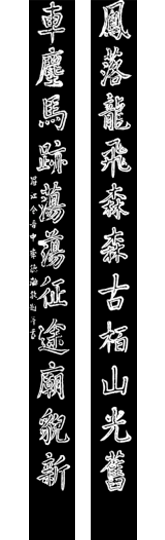 鳳落龍飛森森古栢山光舊
車塵馬跡蕩蕩征途廟貌新